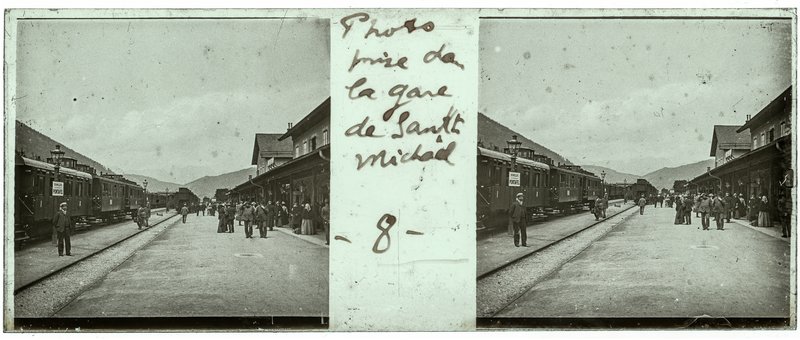 Photo
prise dan
la gare
de Sankt
Michaël
- 8 -